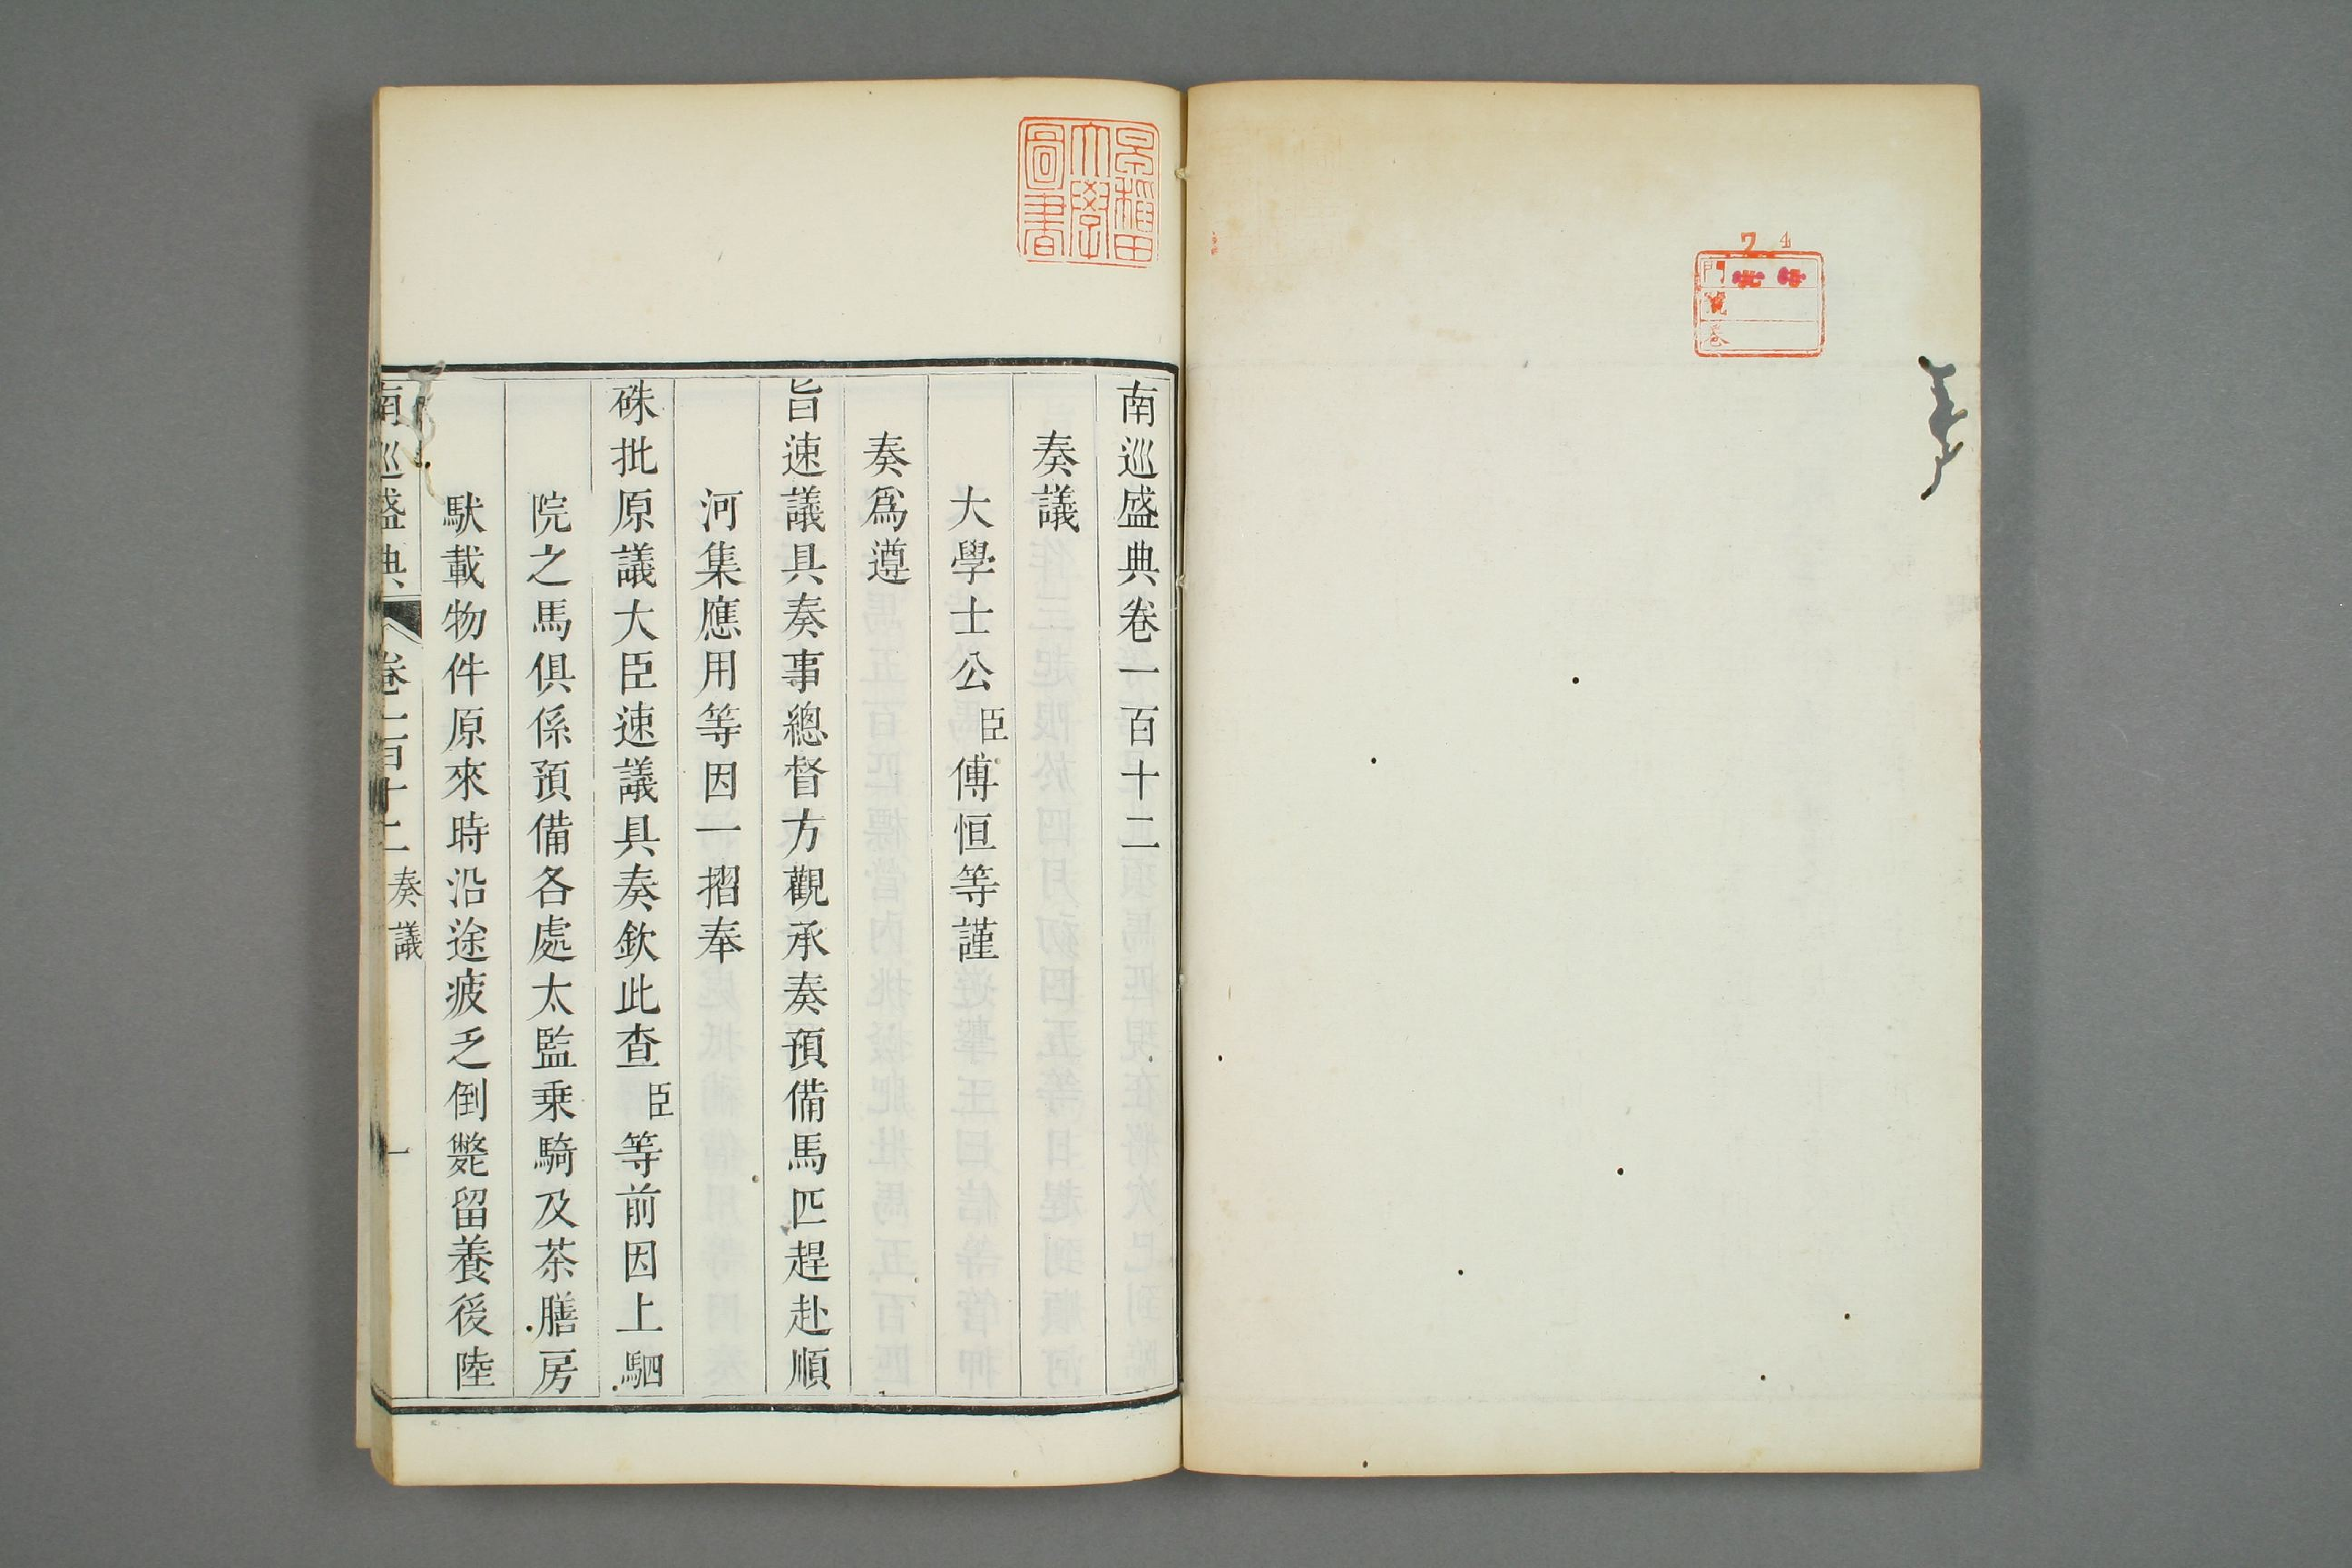 南巡盛典卷一百十二
奏議
大學士公臣傅恒等謹
奏爲遵
旨速議具奏事總督方觀承奏預備馬匹趕赴順
河集應用等因一摺奉
硃批原議大臣速議具奏欽此查臣等前因上駟
院之馬俱係預備各處太監乗騎及茶膳房
馱載物件原來時沿途疲乏倒斃留養後陸
南巡盛典 卷一百十二 奏議 一
早稻田
大學
圖書
門
號
卷